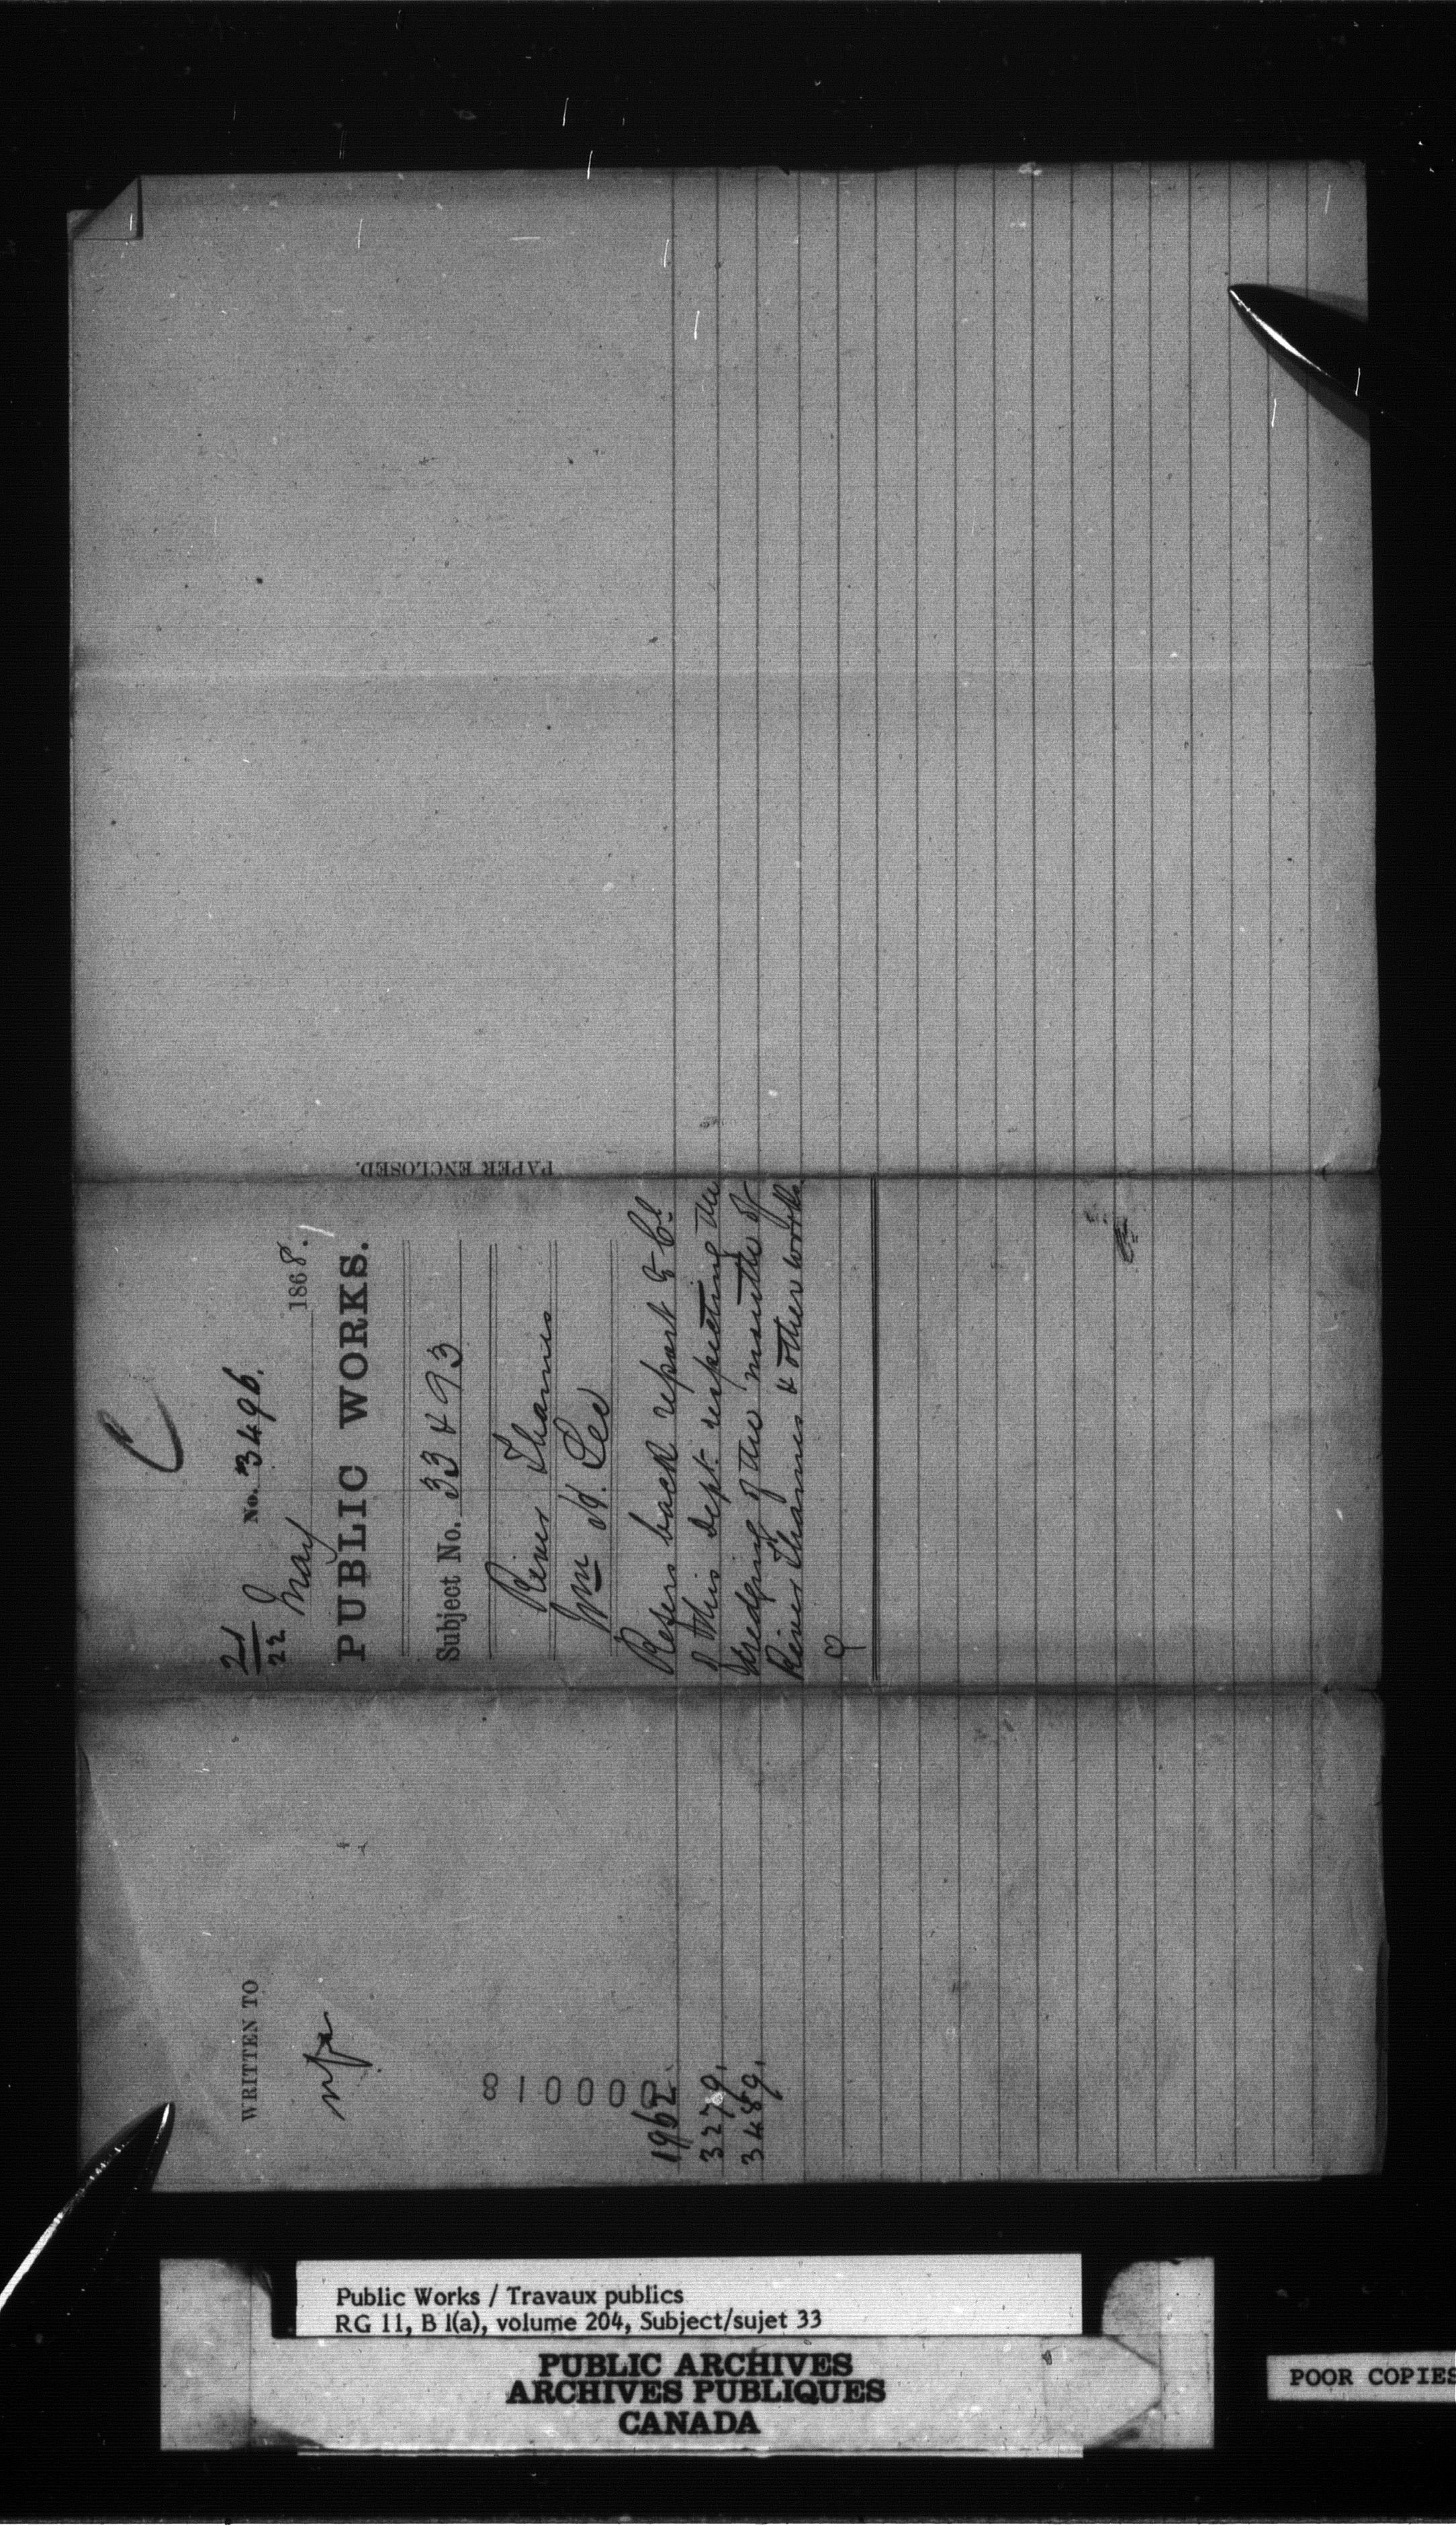 C
21/22 No. 3496.
May 1868.
PUBLIC WORKS.
Subject No. 33 & 93
River Thames
Wm H. Lee
Refers back report to Cl.
of this Dept. respecting the
dredging of the mouth of
River Thames & other works
PAPER ENCLOSED.
WRITTEN TO
810000
1962.
3279.
3489.
Public Works / Travaux publics
RG 11, B 1(a), volume 204, Subject/sujet 33
PUBLIC ARCHIVES
ARCHIVES PUBLIQUES
CANADA
POOR COPIES